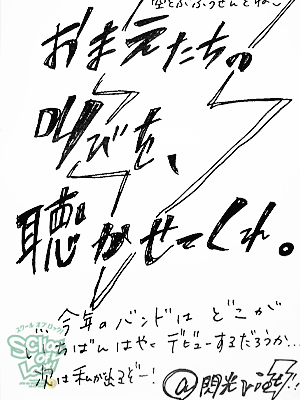 空とぶふうせんとねこ
おまえたちの
叫びを、
聴かせてくれ。
今年のバンドは どこが
いちばんはやく デビューするだろうか…
次は私が送るぞー!
スクール オブ ロック
SCHOOL OF LOCK!
@閃光ひ